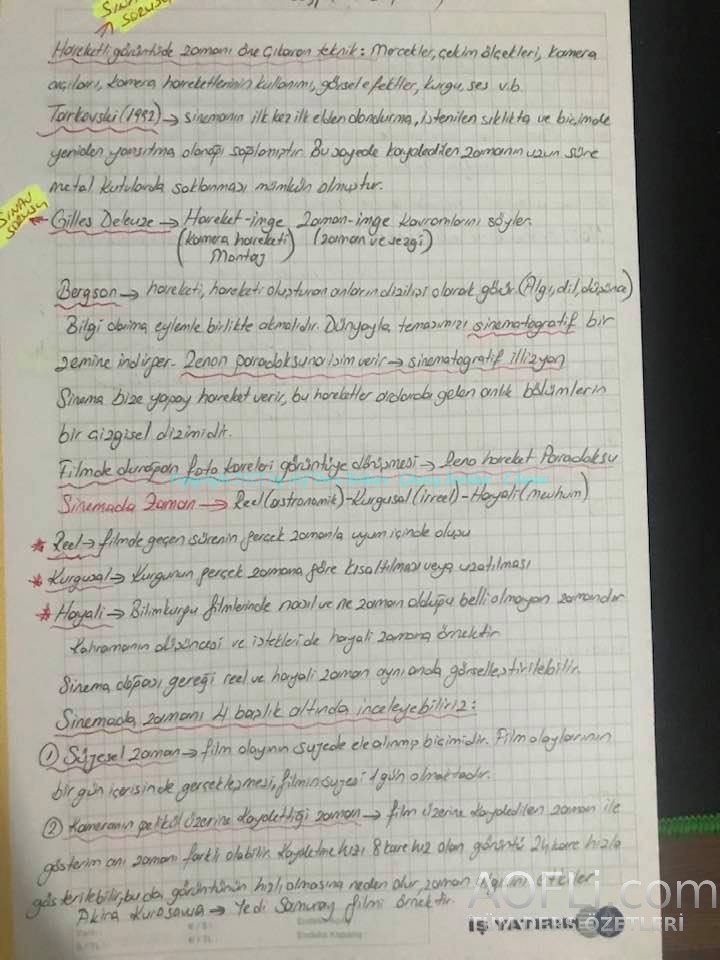 SINAV
SORUSU
Hareketli görüntüde zamanı öne çıkaran teknik: Mercekler, çekim ölçekleri, kamera
açıları, kamera hareketlerinin kullanımı, görsel efektler, kurgu, ses v.b.
Tarkovski (1992) → sinemanın ilk kez ilk elden dondurma, istenilen sıklıkta ve biçimde
yeniden yansıtma olanağı sağlamıştır. Bu sayede kaydedilen zamanın uzun süre
metal kutularda saklanması mümkün olmuştur.
SINAV
SORUSU
Gilles Deleuze → Hareket-imge zaman-imge kavramlarını söyler.
(kamera hareketi) (zaman ve sezgi)
Montaj
Bergson → hareketi, hareketi oluşturan anların dizilişi olarak görür. (Algı, dil, düşünce)
Bilgi daima eylemle birlikte akmalıdır. Dünyayla temasımızı sinematografik bir
zemine indirger. Zenon paradoksuna isim verir → sinematografik illüzyon
Sinema bize yapay hareket verir, bu hareketler ardarda gelen anlık bölümlerin
bir çizgisel dizimidir.
Filmde durağan foto kareleri görüntüye dönüşmesi → Zeno hareket Paradoksu
Sinemada Zaman → Reel (astronomik) - Kurgusal (irreel) - Hayali (mevhum)
* Reel → filmde geçen sürenin gerçek zamanla uyum içinde oluşu
* Kurgusal → Kurgunun gerçek zamana göre kısaltılması veya uzatılması
* Hayali → Bilimkurgu filmlerinde nasıl ve ne zaman olduğu belli olmayan zamandır
Kahramanın düşüncesi ve istekleri de hayali zamana örnektir
Sinema doğası gereği reel ve hayali zaman aynı anda görselleştirilebilir.
Sinemada zamanı 4 başlık altında inceleyebiliriz:
① Süjesel zaman → film olayının süjede ele alınmış biçimidir. Film olaylarının
bir gün içerisinde gerçekleşmesi, filmin süjesi 1 gün olmaktadır.
② Kameranın pelikül üzerine kaydettiği zaman → film üzerine kaydedilen zaman ile
gösterim anı zamanı farklı olabilir. Kaydetme hızı 8 kare hız olan görüntü 24 kare hızla
gösterilebilir, bu da görüntünün hızlı olmasına neden olur, zaman algısını etkiler
Akira Kurosawa → Yedi Samuray filmi örnektir.
AOFLi.com
ÖZETLERİ
İŞ YATIRIM